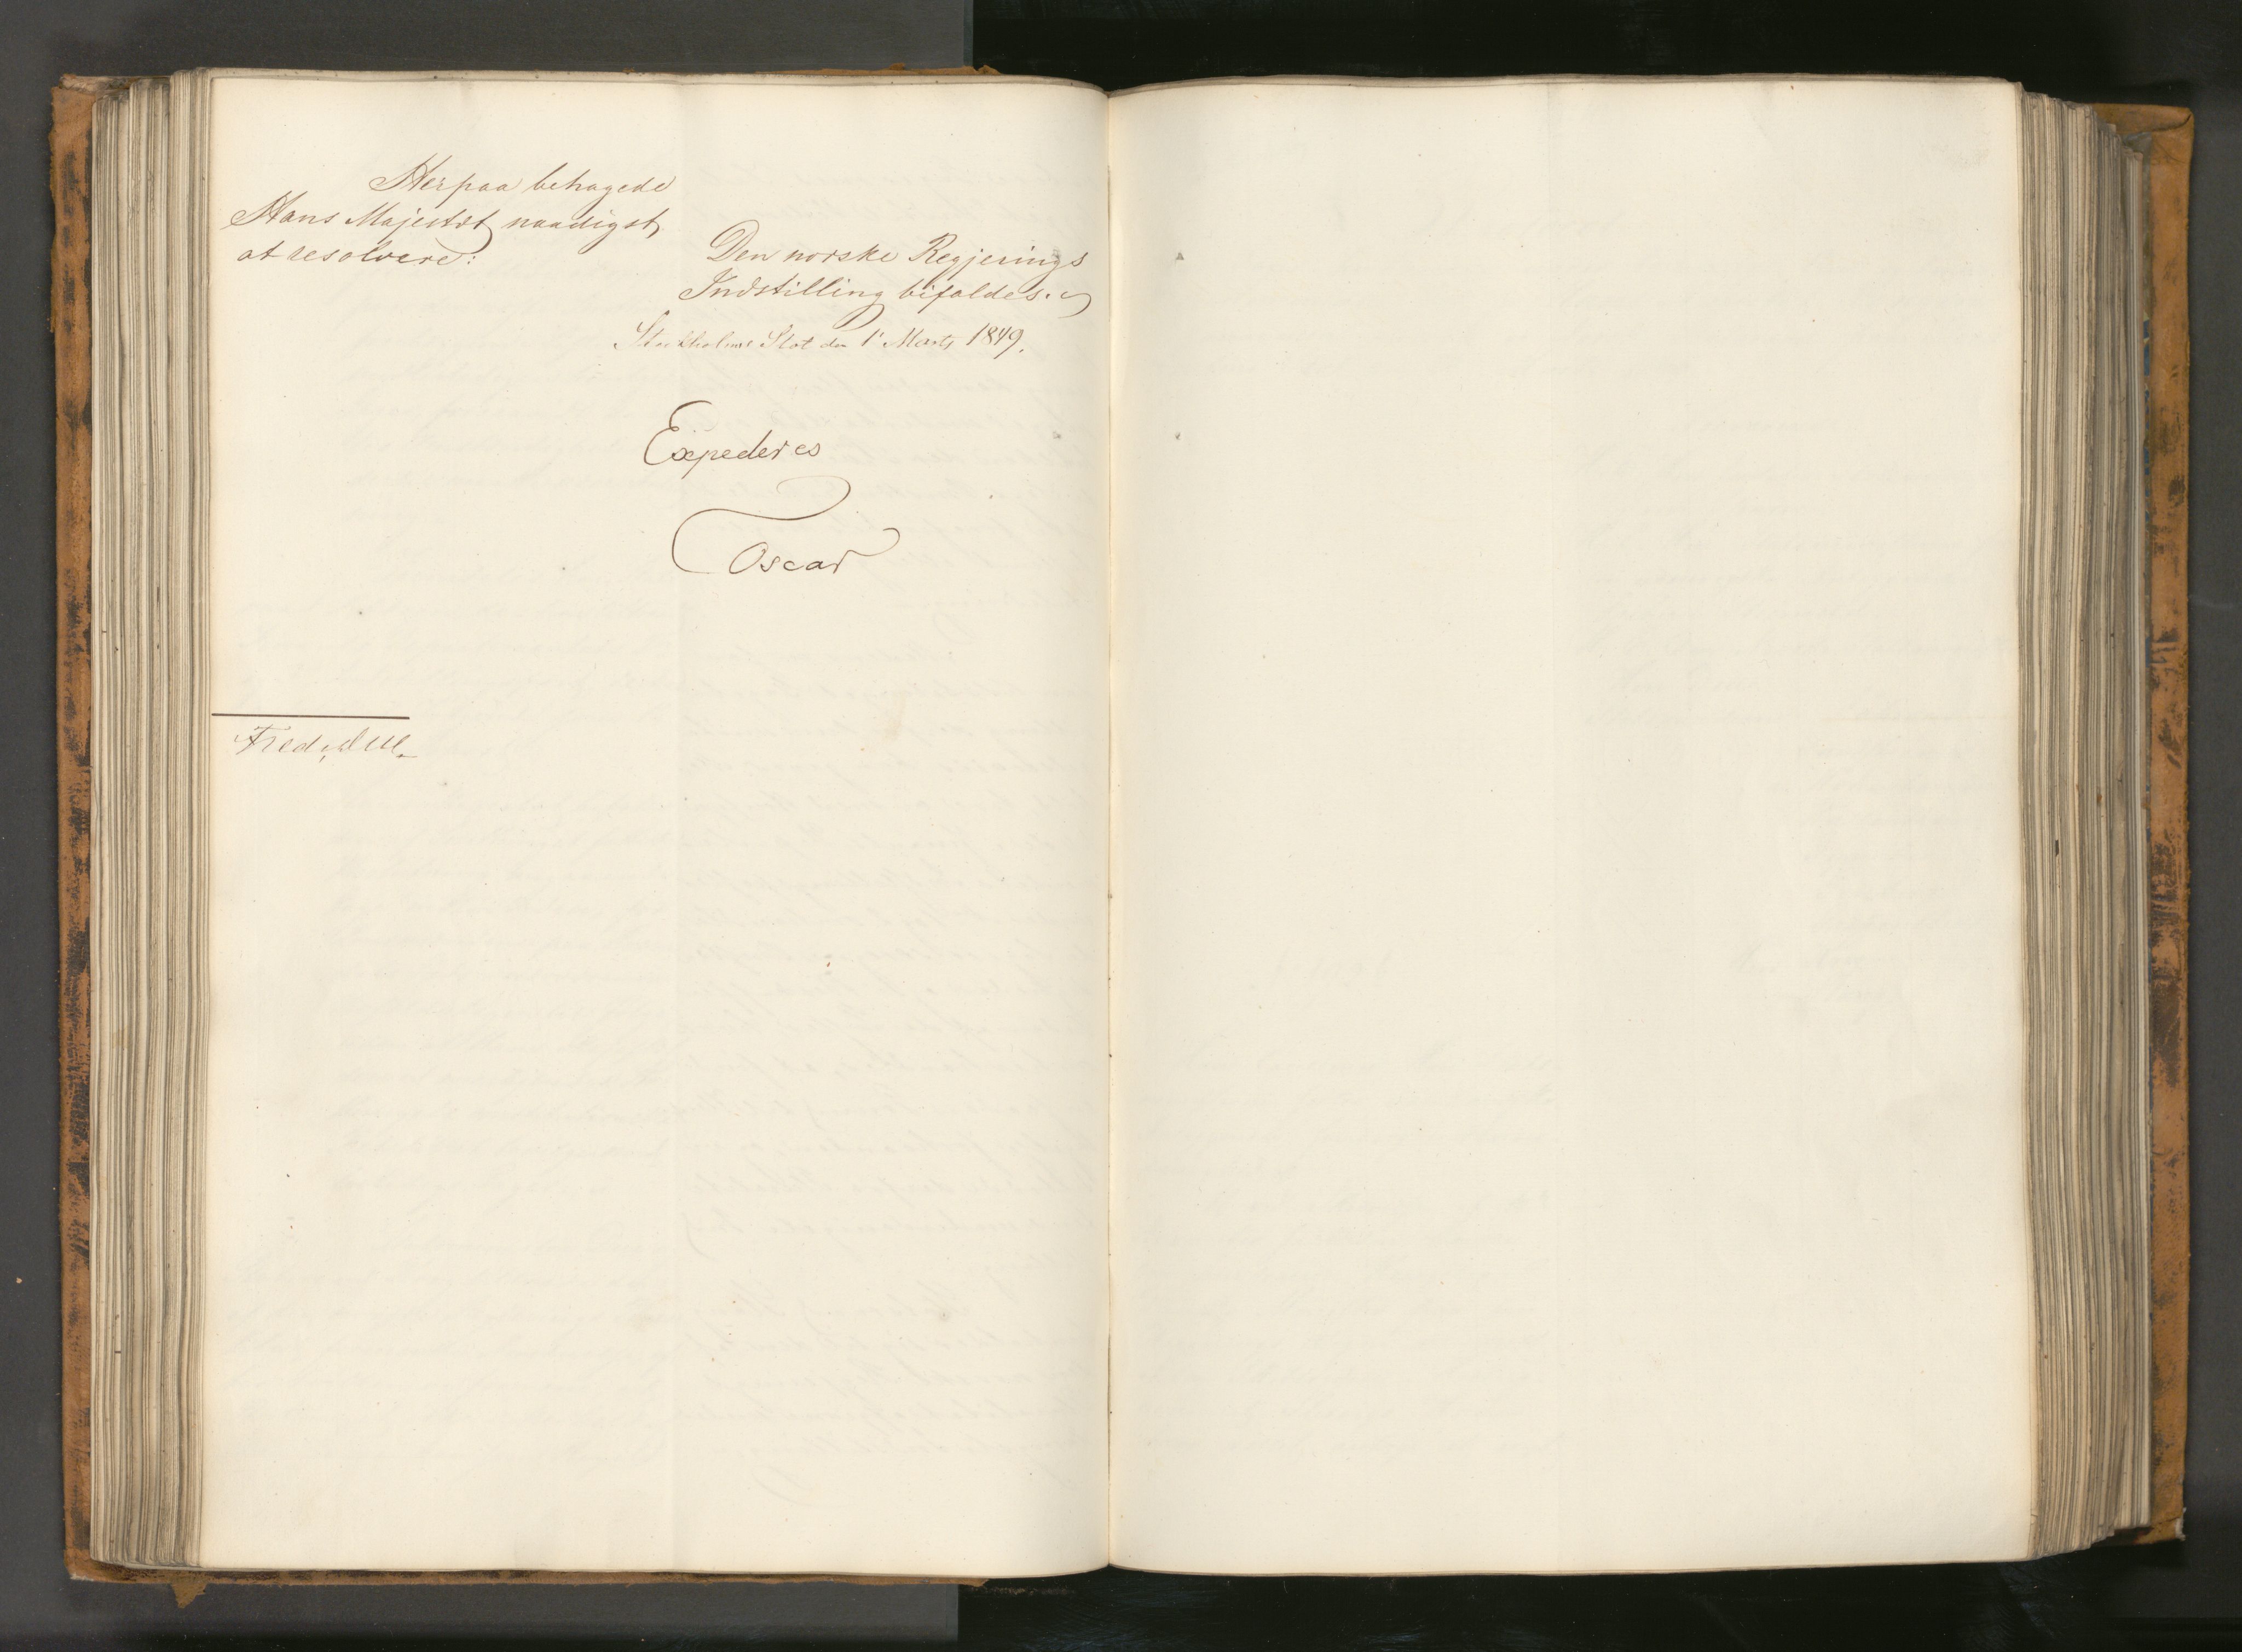 Herpaa behagede
Hans Majestæt naadigst
at resolvere:
Den norske Regjerings
Indstilling bifaldes.
Stockholms Slot den 1ste Marts 1849.
Expederes
Oscar
Fred. Due